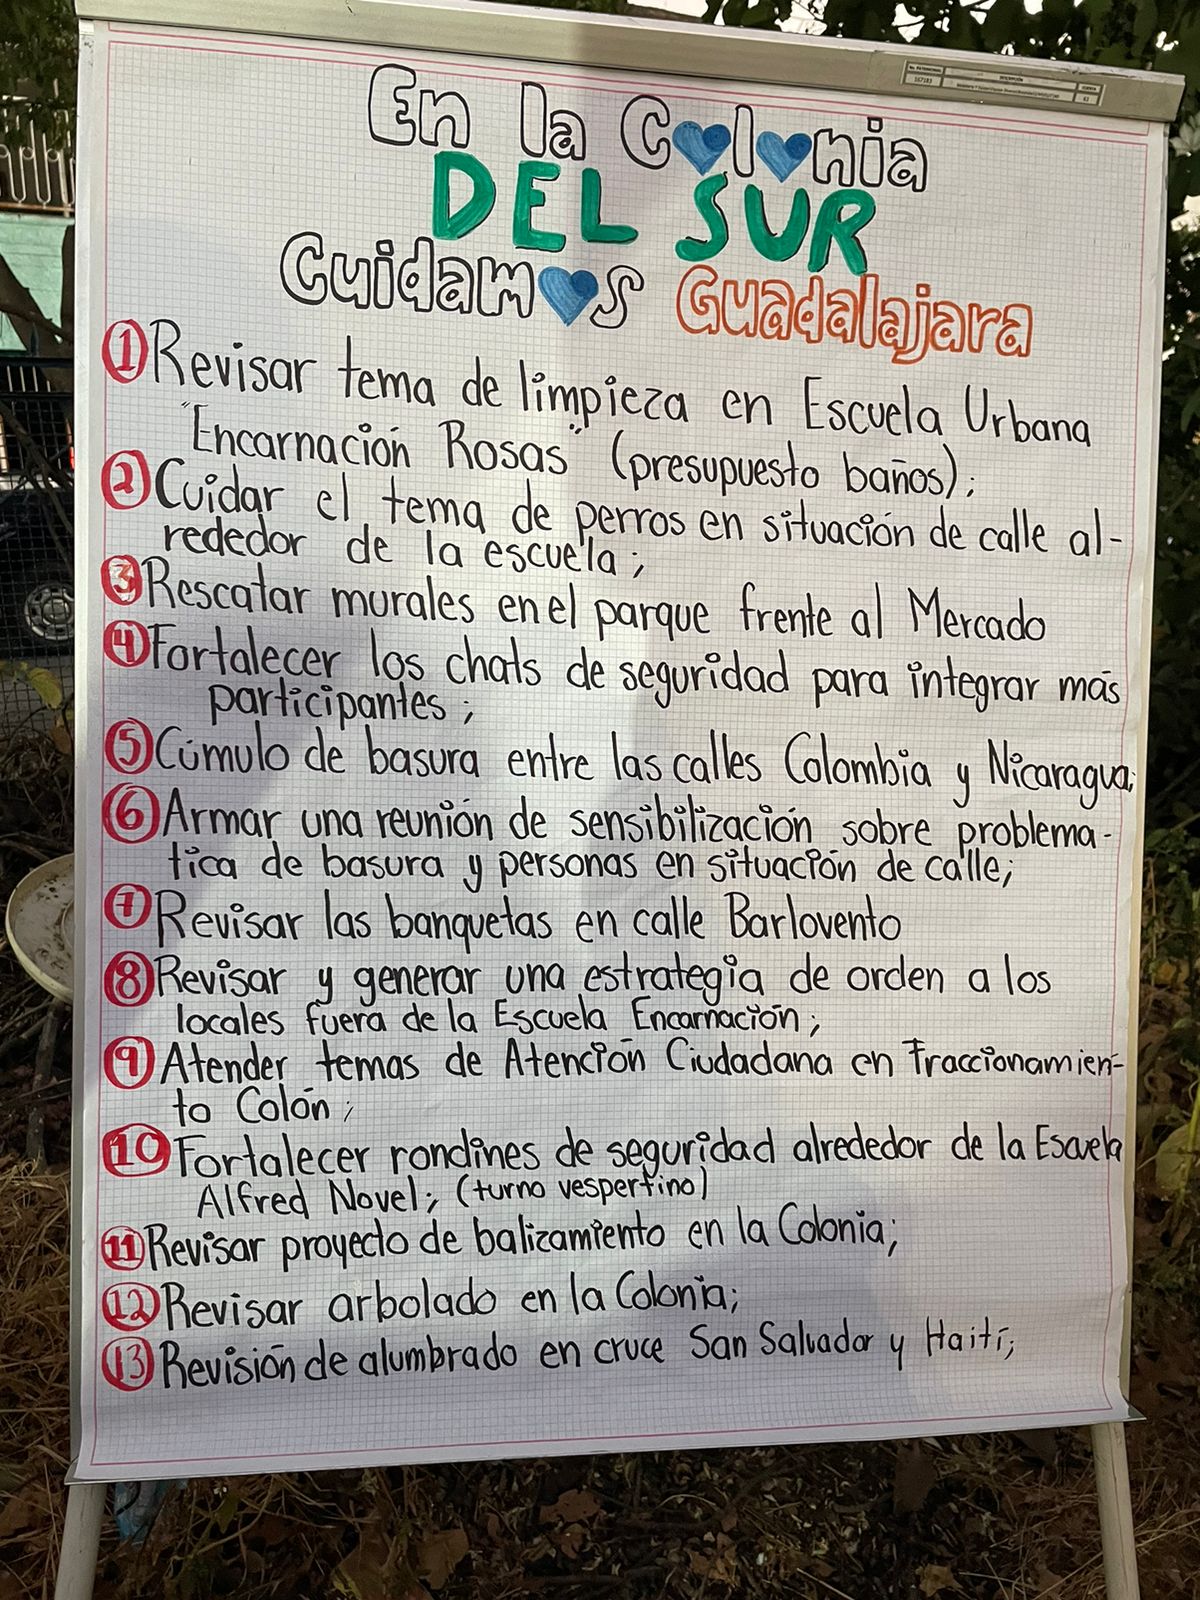 En la Colonia
DEL SUR
Cuidamos Guadalajara
1 Revisar tema de limpieza en Escuela Urbana
"Encarnación Rosas" (presupuesto baños);
2 Cuidar el tema de perros en situación de calle al-
rededor de la escuela;
3 Rescatar murales en el parque frente al Mercado
4 Fortalecer los chats de seguridad para integrar más
participantes;
5 Cúmulo de basura entre las calles Colombia y Nicaragua;
6 Armar una reunión de sensibilización sobre problema-
tica de basura y personas en situación de calle;
7 Revisar las banquetas en calle Barlovento
8 Revisar y generar una estrategia de orden a los
locales fuera de la Escuela Encarnación;
9 Atender temas de Atención Ciudadana en Fraccionamien-
to Colón;
10 Fortalecer rondines de seguridad alrededor de la Escuela
Alfred Novel; (turno vespertino)
11 Revisar proyecto de balizamiento en la Colonia;
12 Revisar arbolado en la Colonia;
13 Revisión de alumbrado en cruce San Salvador y Haití;